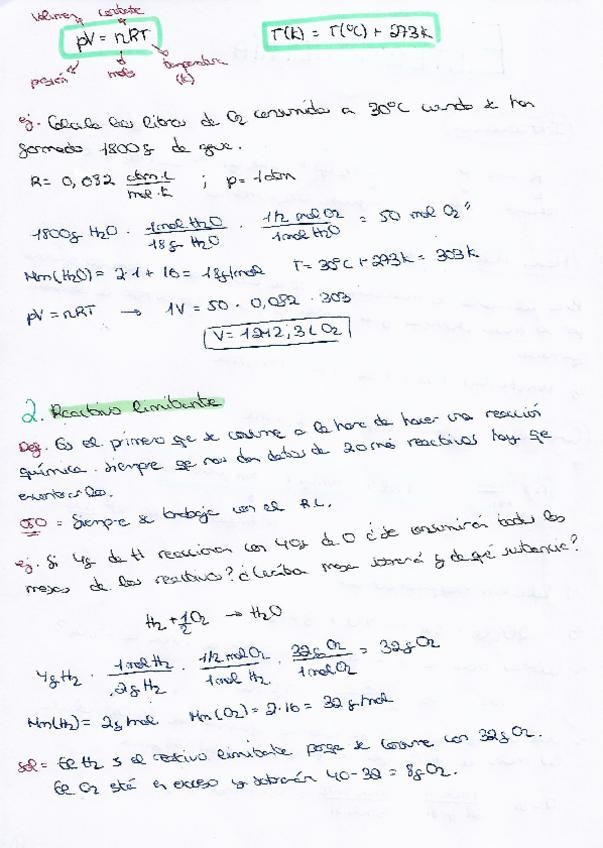 volumen constante
pV = nRT T(K) = T(ºC) + 273K
presión moles temperatura (K)
ej. Calcula los litros de O2 consumidos a 30ºC cuando se han
formado 1800g de agua.
R = 0,082 atm·L/mol·K ; p = 1atm
1800g H2O · 1mol H2O/18g H2O · 1/2 mol O2/1mol H2O = 50 mol O2"
Mm(H2O) = 2·1 + 16 = 18g/mol T = 30ºC + 273K = 303K
pV = nRT → 1V = 50 · 0,082 · 303
V = 1242,3L O2
2. Reactivo limitante
Def. Es el primero qe se consume a la hora de hacer una reacción
química. Siempre qe nos dan datos de 2 o más reactivos hay qe
OJO = Siempre se trabaja con el R.L.
ej. Si 4g de H reaccionan con 40g de O ¿se consumirán todas las
masas de los reactivos? ¿Cuánta masa sobrará y de qué sustancia?
H2 + 1/2 O2 → H2O
4g H2 · 1mol H2/2g H2 · 1/2 mol O2/1mol H2 · 32g O2/1mol O2 = 32g O2
Mm(H2) = 2g/mol Mm(O2) = 2·16 = 32 g/mol
Sol = El H2 es el reactivo limitante porqe se consume con 32g O2.
El O2 está en exceso y sobrarán 40 - 32 = 8g O2.